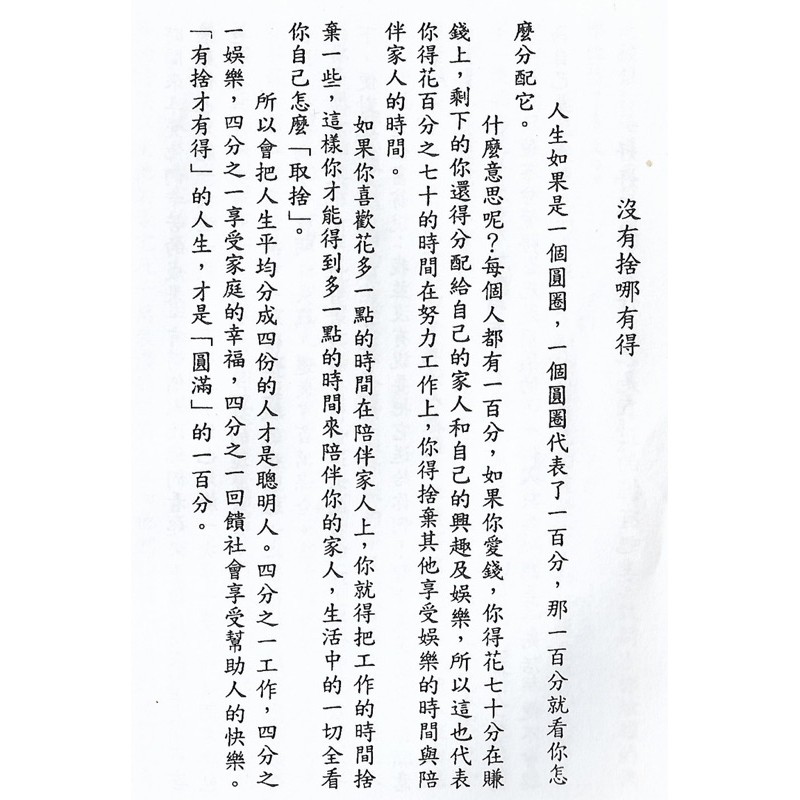 沒有捨哪有得
人生如果是一個圓圈，一個圓圈代表了一百分，那一百分就看你怎
麼分配它。
什麼意思呢？每個人都有一百分，如果你愛錢，你得花七十分在賺
錢上，剩下的你還得分配給自己的家人和自己的興趣及娛樂，所以這也代表
你得花百分之七十的時間在努力工作上，你得捨棄其他享受娛樂的時間與陪
伴家人的時間。
如果你喜歡花多一點的時間在陪伴家人上，你就得把工作的時間捨
棄一些，這樣你才能得到多一點的時間來陪伴你的家人，生活中的一切全看
你自己怎麼「取捨」。
所以會把人生平均分成四份的人才是聰明人。四分之一工作，四分之
一娛樂，四分之一享受家庭的幸福，四分之一回饋社會享受幫助人的快樂。
「有捨才有得」的人生，才是「圓滿」的一百分。